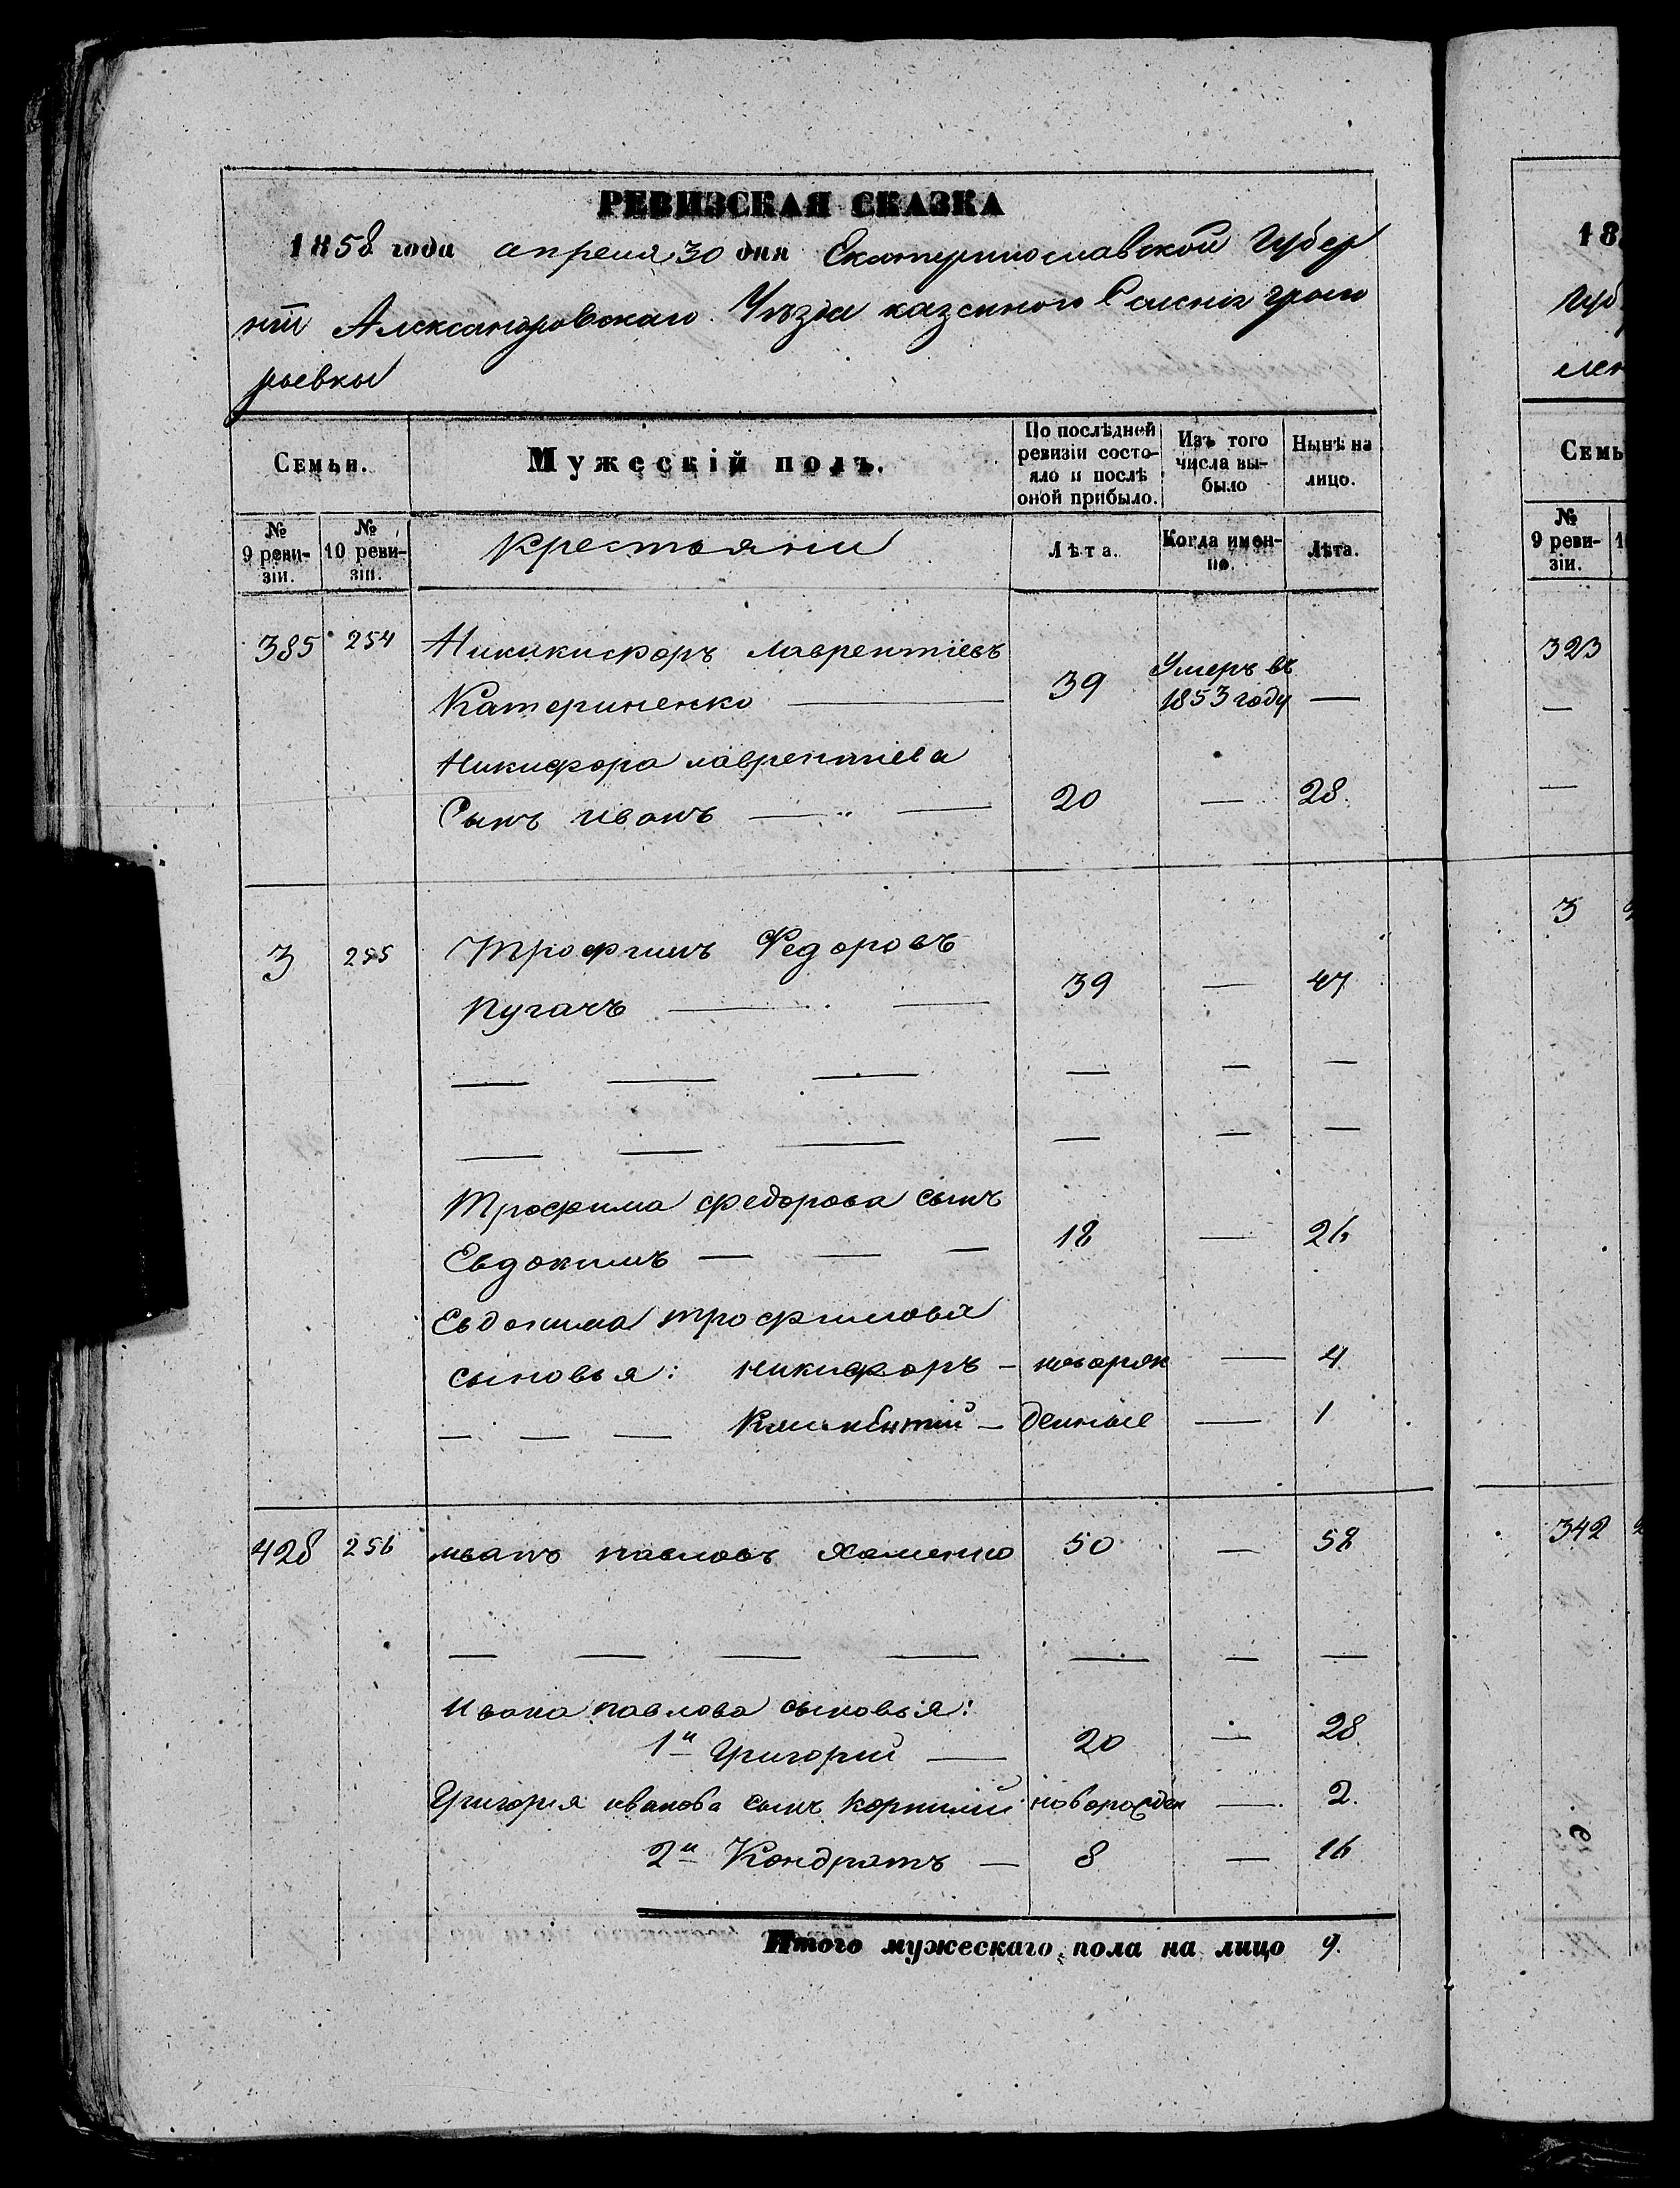 РЕВИЗСКАЯ СКАЗКА
1858 года апреля 30 дня Екатеринославской Губер
нiи Александровскаго Уѣзда казенного Селенiя Григо
рьевки
Семьи. Мужескiй полъ. По послѣдней ревизiи состояло и послѣ оной прибыло. Изъ того числа выбыло Нынѣ на лицо.
№ 9 ревизiи. № 10 ревизiи. Крестьяни Лѣта. Когда именно. Лѣта.
385 254 Никикифоръ лаврентiевъ
Катериненко — 39 Умеръ въ 1853 году —
Никифора лаврентiева
Сынъ иванъ — " — 20 — 28.
3 255 Трофимъ Федоровъ
Пугачъ — — 39 — 47
— — — — — —
— — — — — —
Трофима федорова сынъ
Евдокимъ — — — 18 — 26
Евдокима трофимова
сыновья: никифоръ – новорож — 4
— — — Климентий – денные — 1
428 256 иванъ павловъ Хоменко 50 — 58
— — — — — — —
Ивана павлова сыновья:
1й Григорий — 20 — 28
Григория иванова сынъ Корнилий новорожден — 2.
2й Кондратъ — 8 — 16
Итого мужескаго пола на лицо 9.
18
Губ
лен
Семь
№ 9 ревизiи. 1
323
—
—
3
342